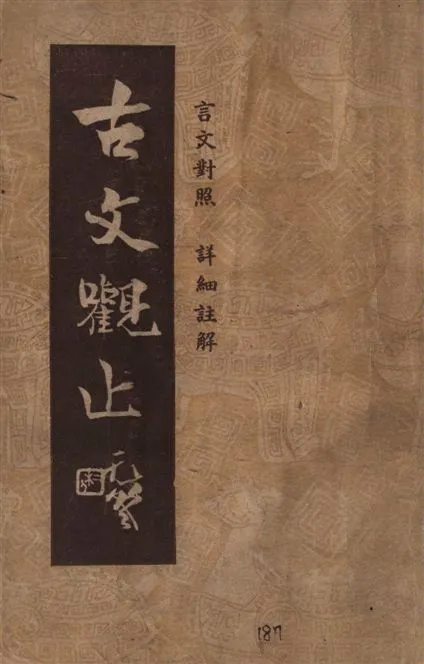 言文對照 詳細註解
古文觀止
187